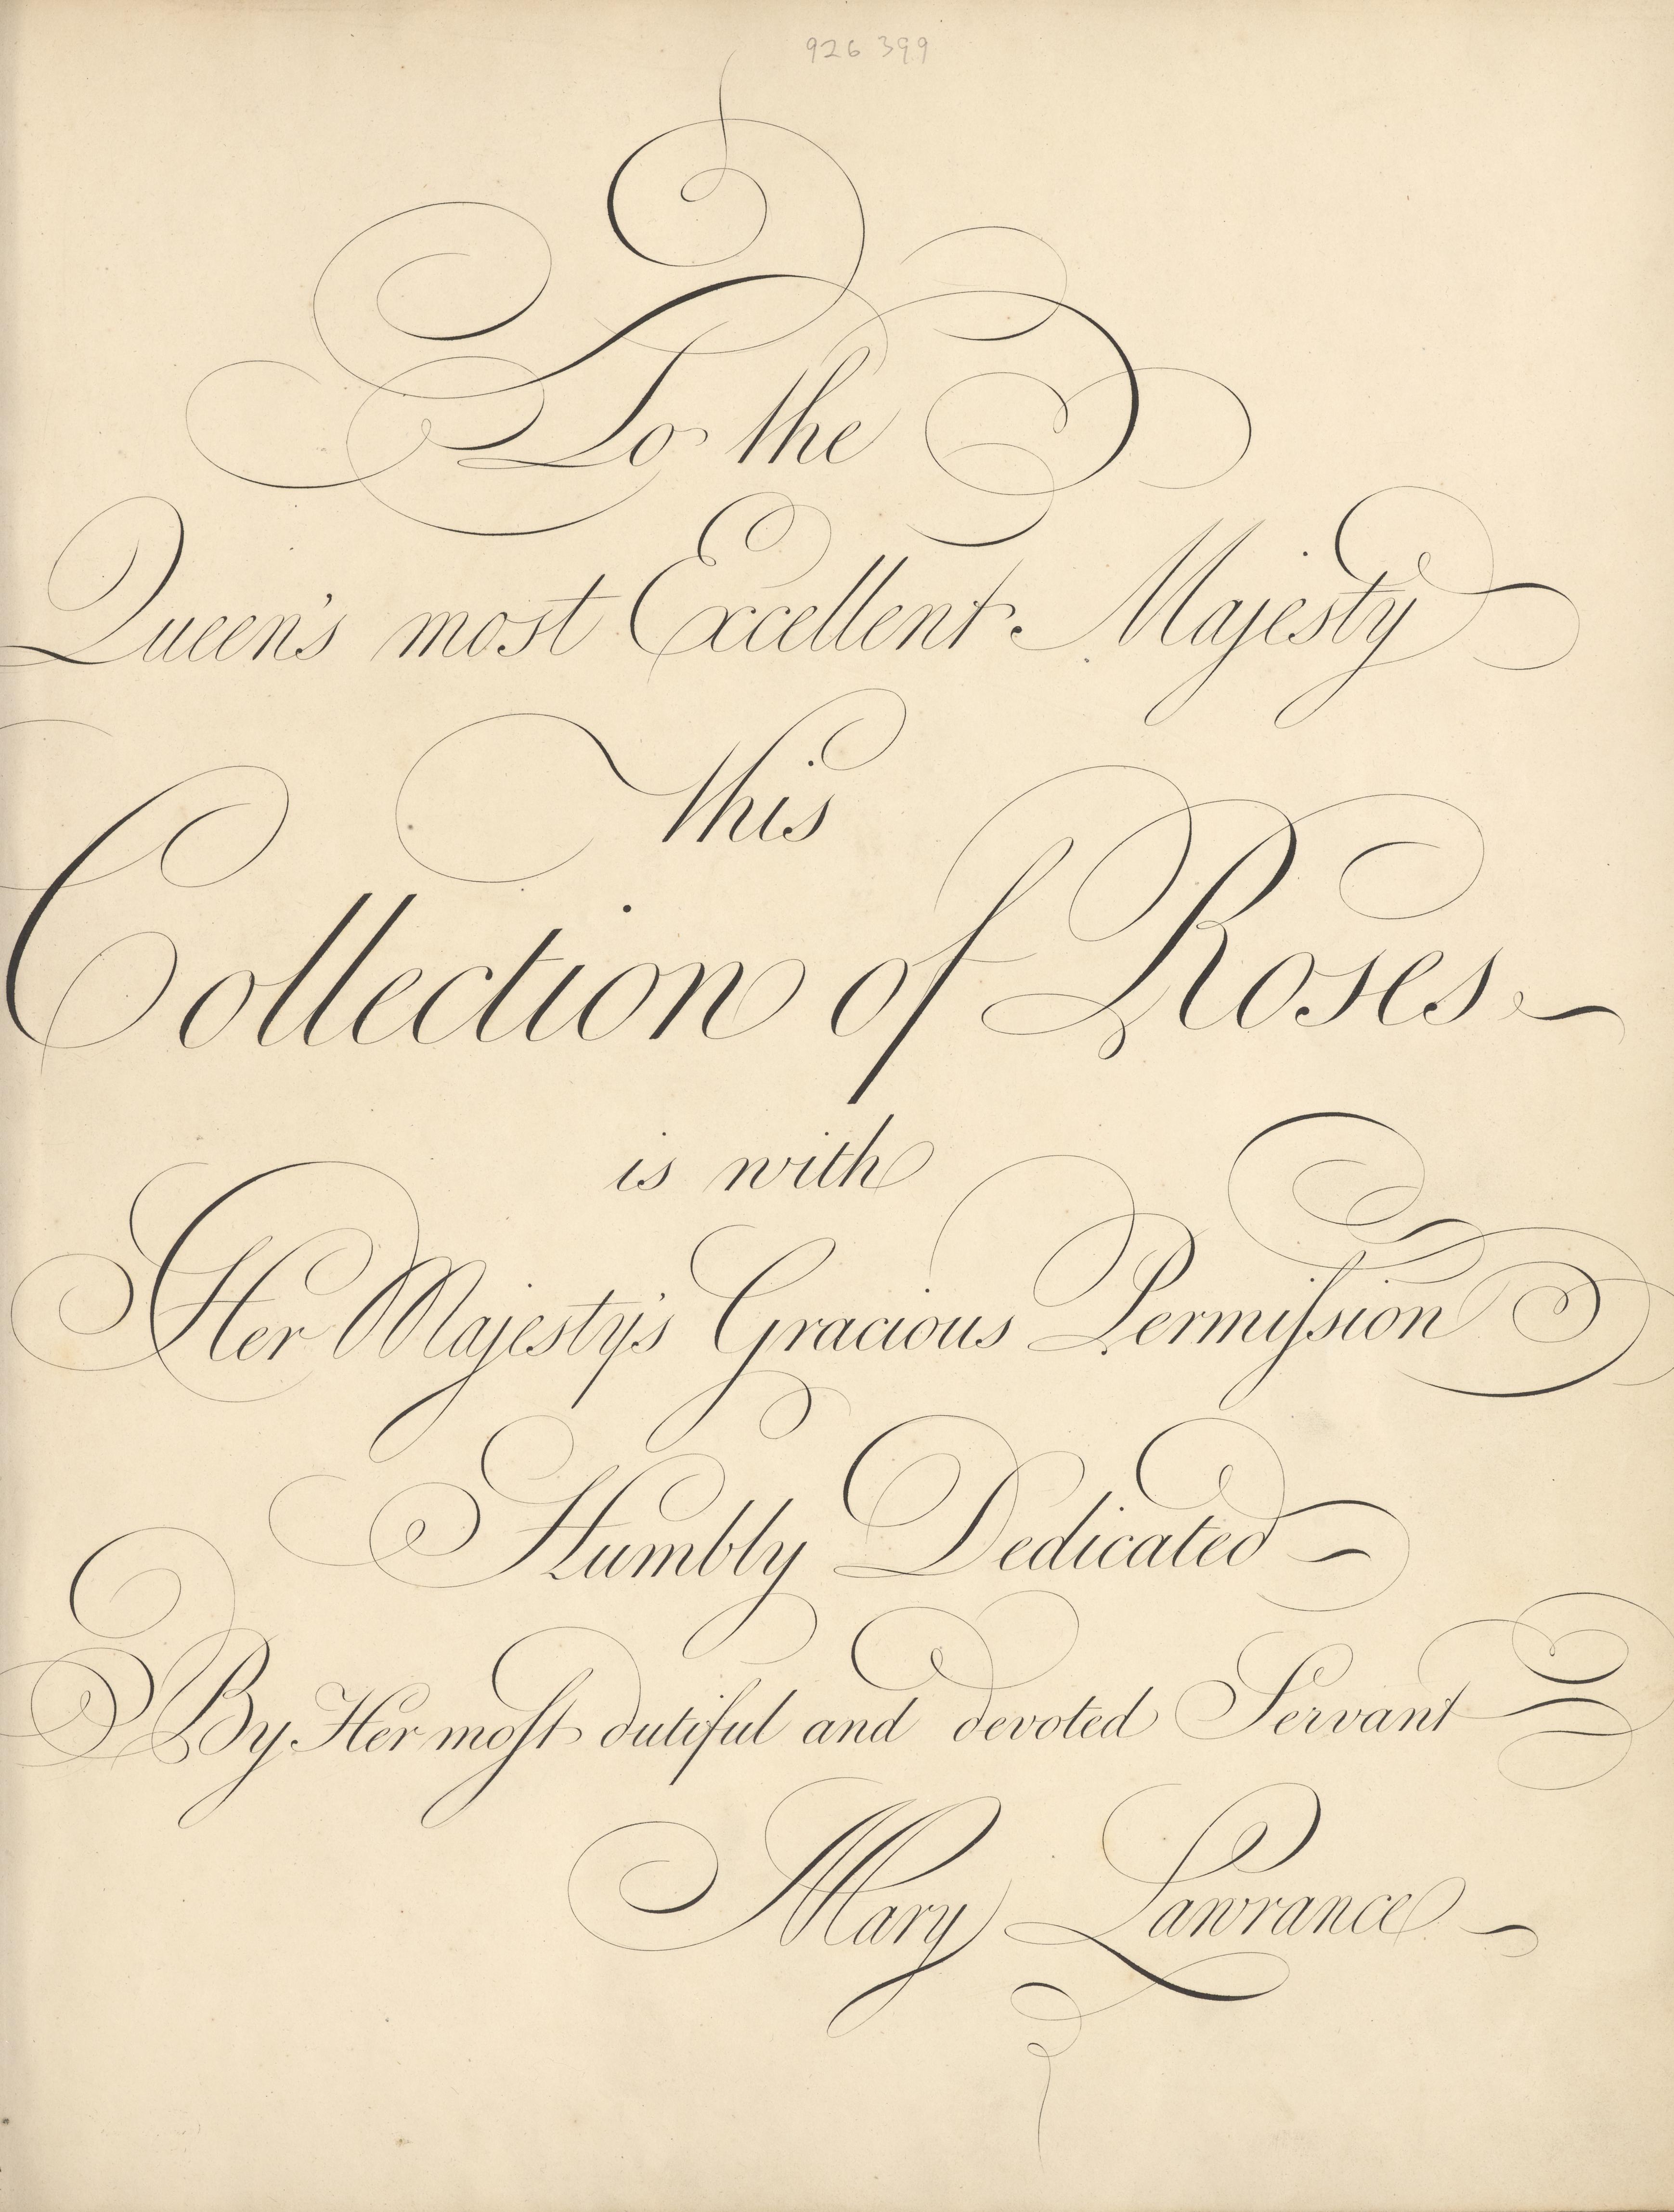 926 399
To the
Queen's most Excellent Majesty
this
Collection of Roses
is with
Her Majesty's Gracious Permiſsion
Humbly Dedicated
By Her moſt dutiful and devoted Servant
Mary Lawrance